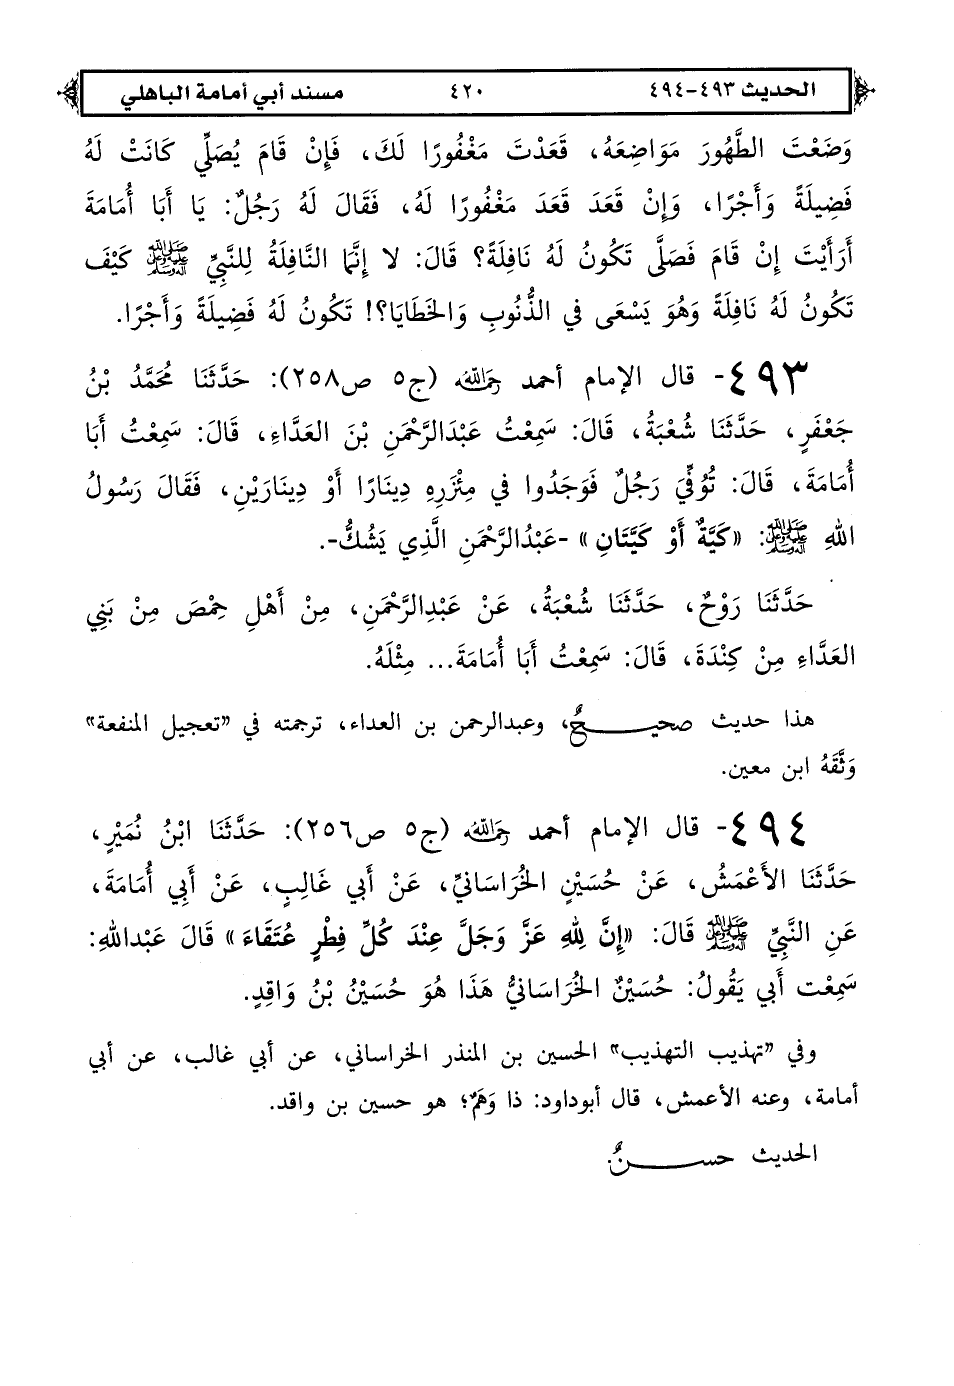 الحديث ٤٩٣-٤٩٤ ٤٢٠ مسند أبي أمامة الباهلي
وَضَعْتَ الطَّهُورَ مَوَاضِعَهُ، قَعَدْتَ مَغْفُورًا لَكَ، فَإِنْ قَامَ يُصَلِّي كَانَتْ لَهُ
فَضِيلَةً وَأَجْرًا، وَإِنْ قَعَدَ قَعَدَ مَغْفُورًا لَهُ، فَقَالَ لَهُ رَجُلٌ: يَا أَبَا أُمَامَةَ
أَرَأَيْتَ إِنْ قَامَ فَصَلَّى تَكُونُ لَهُ نَافِلَةً؟ قَالَ: لا إِنَّمَا النَّافِلَةُ لِلنَّبِيِّ ﷺ كَيْفَ
تَكُونُ لَهُ نَافِلَةً وَهُوَ يَسْعَى فِي الذُّنُوبِ وَالخَطَايَا؟! تَكُونُ لَهُ فَضِيلَةً وَأَجْرًا.
٤٩٣- قال الإمام أحمد رَحِمَهُ اللهُ (ج٥ ص٢٥٨): حَدَّثَنَا مُحَمَّدُ بْنُ
جَعْفَرٍ، حَدَّثَنَا شُعْبَةُ، قَالَ: سَمِعْتُ عَبْدَالرَّحْمَنِ بْنَ العَدَّاءِ، قَالَ: سَمِعْتُ أَبَا
أُمَامَةَ، قَالَ: تُوُفِّيَ رَجُلٌ فَوَجَدُوا فِي مِئْزَرِهِ دِينَارًا أَوْ دِينَارَيْنِ، فَقَالَ رَسُولُ
اللهِ ﷺ: «كَيَّةٌ أَوْ كَيَّتَانِ» -عَبْدُالرَّحْمَنِ الَّذِي يَشُكُّ-.
حَدَّثَنَا رَوْحٌ، حَدَّثَنَا شُعْبَةُ، عَنْ عَبْدِالرَّحْمَنِ، مِنْ أَهْلِ حِمْصَ مِنْ بَنِي
العَدَّاءِ مِنْ كِنْدَةَ، قَالَ: سَمِعْتُ أَبَا أُمَامَةَ... مِثْلَهُ.
هذا حديث صحيحٌ، وعبدالرحمن بن العداء، ترجمته في "تعجيل المنفعة"
وَثَّقَهُ ابن معين.
٤٩٤- قال الإمام أحمد رَحِمَهُ اللهُ (ج٥ ص٢٥٦): حَدَّثَنَا ابْنُ نُمَيْرٍ،
حَدَّثَنَا الأَعْمَشُ، عَنْ حُسَيْنٍ الخُرَاسَانيِّ، عَنْ أَبي غَالِبٍ، عَنْ أَبِي أُمَامَةَ،
عَنِ النَّبِيِّ ﷺ قَالَ: «إِنَّ لِلهِ عَزَّ وَجَلَّ عِنْدَ كُلِّ فِطْرٍ عُتَقَاءَ» قَالَ عَبْدُاللهِ:
سَمِعْت أَبي يَقُولُ: حُسَيْنٌ الخُرَاسَانيُّ هَذَا هُوَ حُسَيْنُ بْنُ وَاقِدٍ.
وفي "تهذيب التهذيب" الحسين بن المنذر الخراساني، عن أبي غالب، عن أبي
أمامة، وعنه الأعمش، قال أبوداود: ذا وَهَمٌ؛ هو حسين بن واقد.
الحديث حسنٌ.